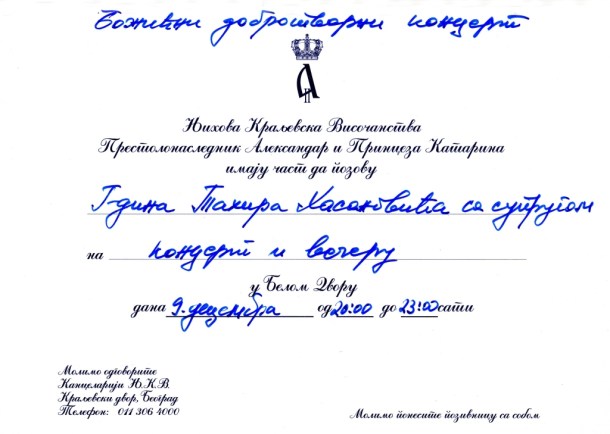 Божићни добротворни концерт
А II
Њихова Краљевска Височанства
Престолонаследник Александар и Принцеза Катарина
имају част да позову
Г-дина Тахира Хасановића са супругом
на концерт и вечеру
у Белом Двору
дана 9. децембра од 20:00 до 23:00 сати
Молимо одговорите
Канцеларији Њ.К.В.
Краљевски двор, Београд
Телефон: 011 306 4000
Молимо понесите позивницу са собом